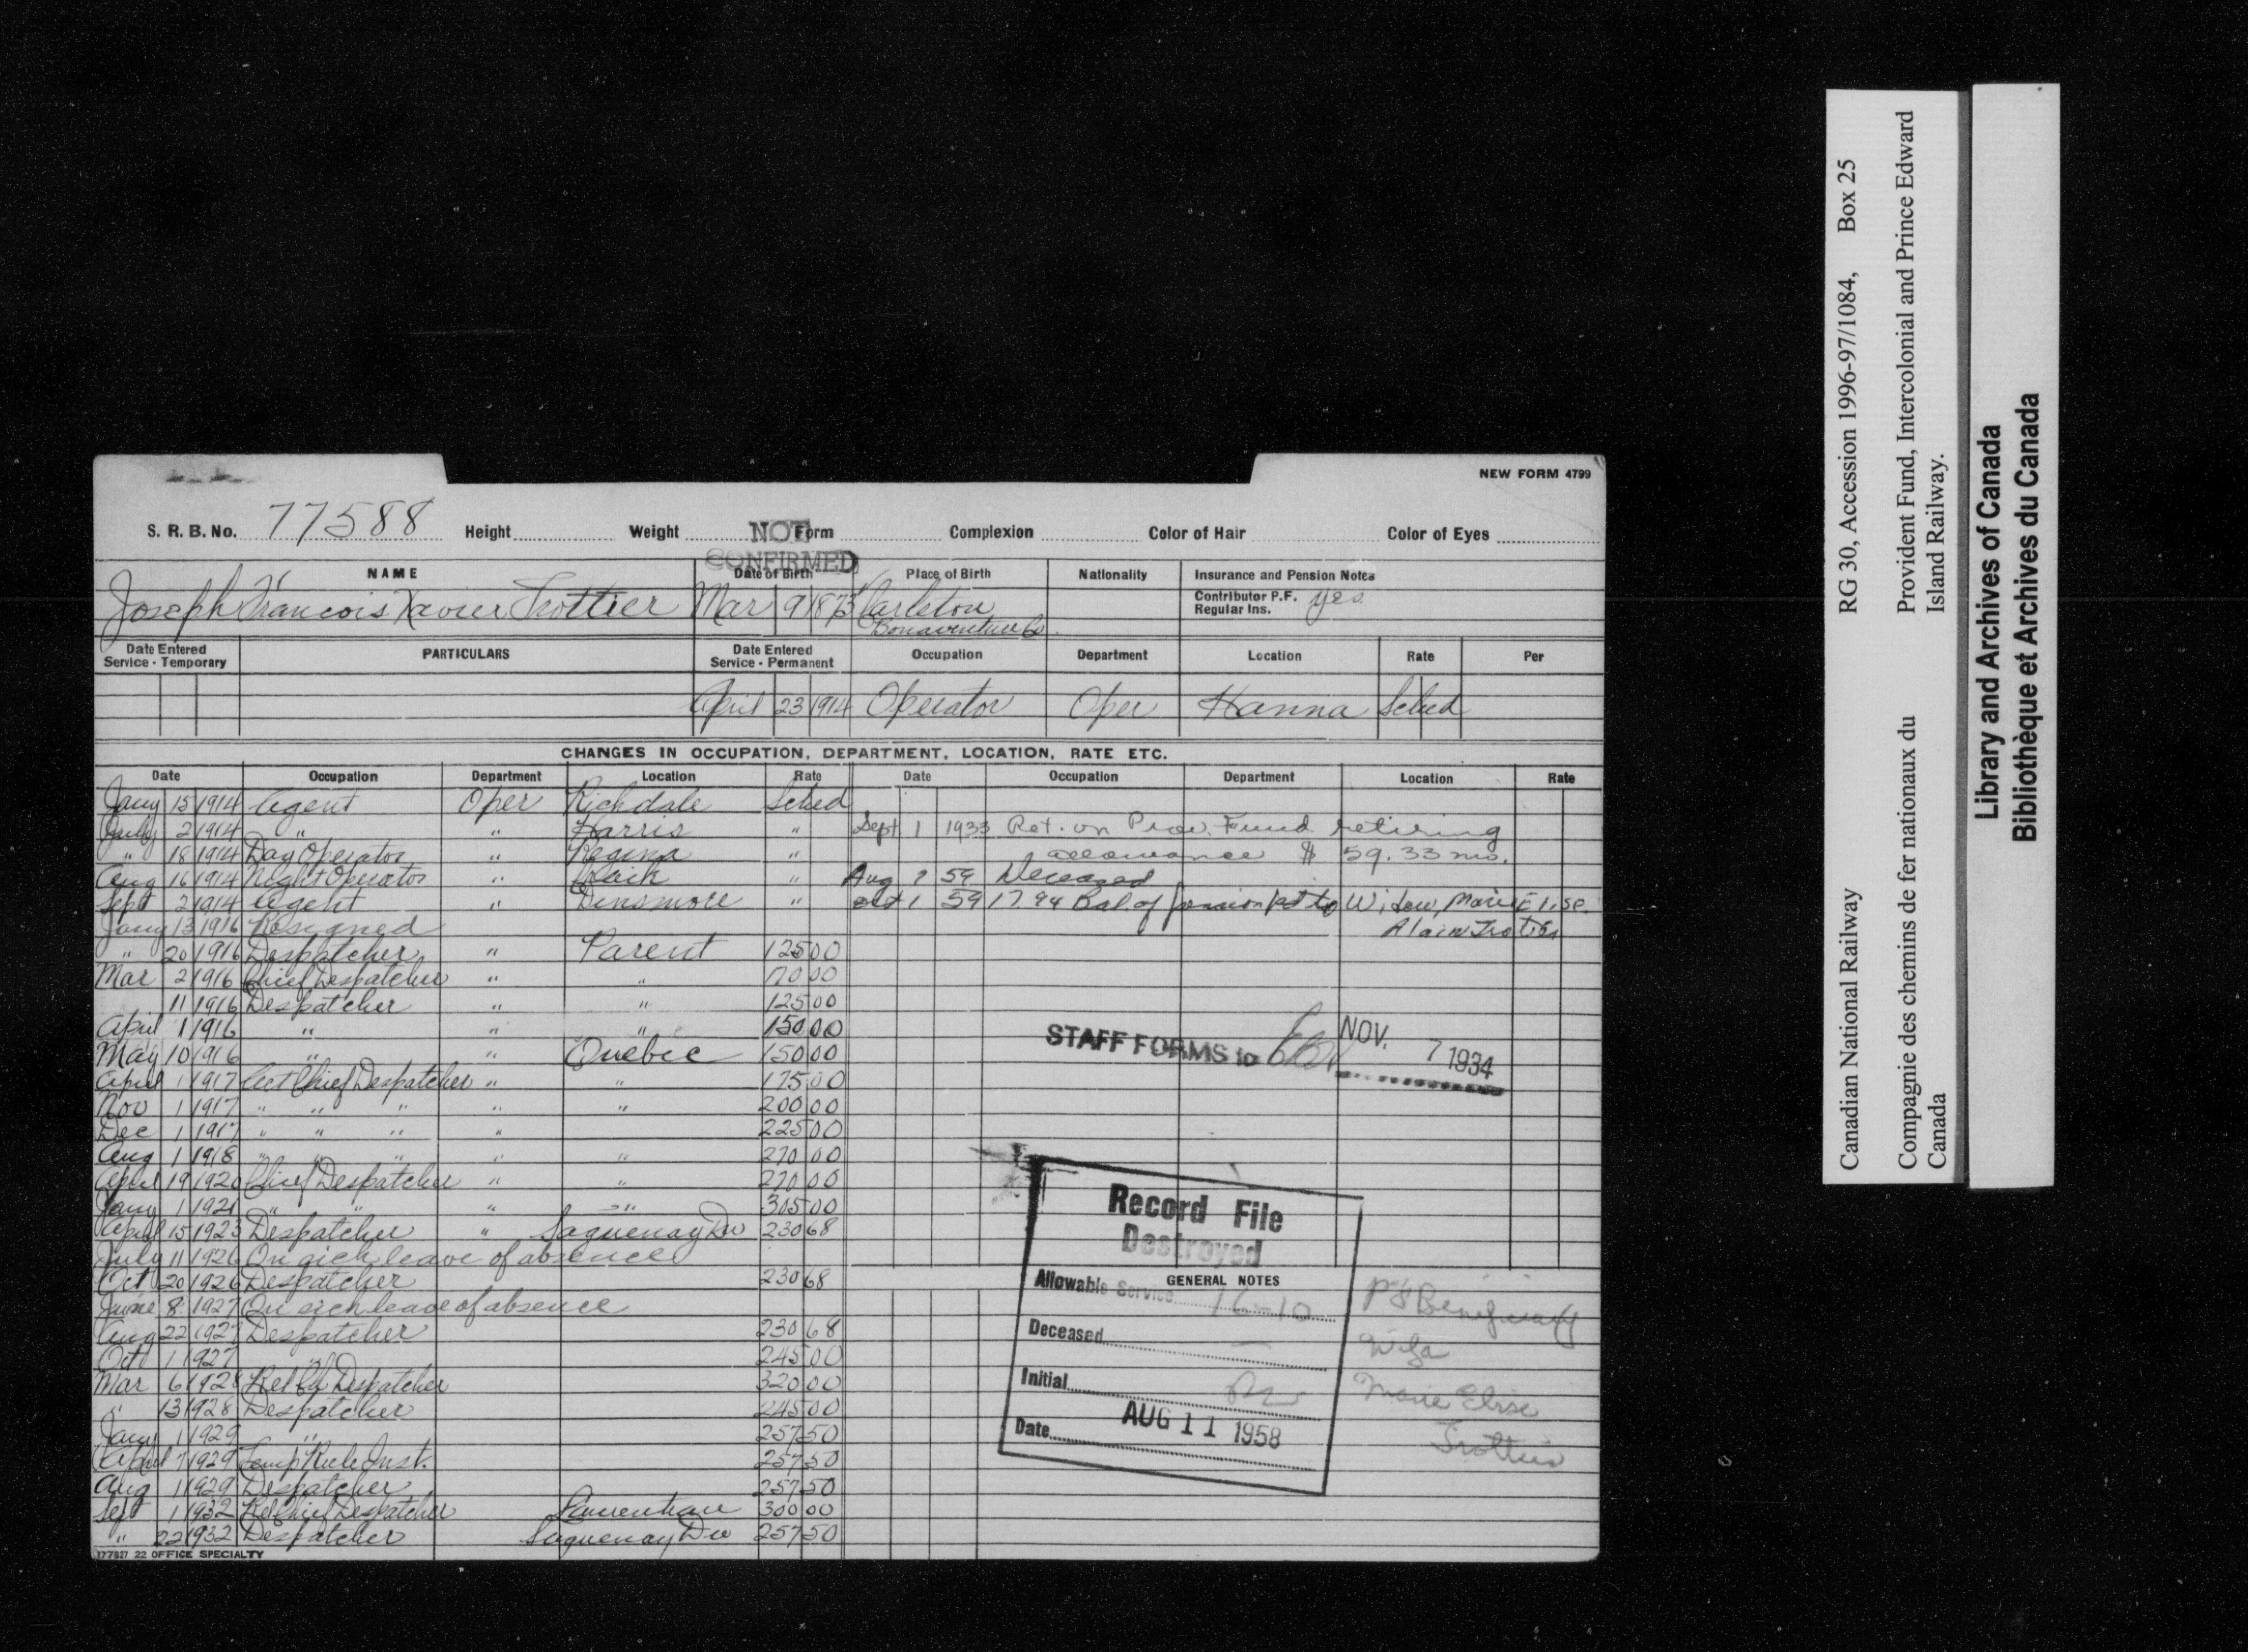 NEW FORM 4799
S. R. B. No. 77588 Height Weight Form Complexion Color of Hair Color of Eyes
NOT CONFIRMED
NAME Date of Birth Place of Birth Nationality Insurance and Pension Notes
Joseph Francois Xavier Trottier Mar 9 1873 Carleton Bonaventure Co.
Contributor P.F. yes
Regular Ins.
Date Entered Service - Temporary PARTICULARS Date Entered Service - Permanent Occupation Department Location Rate Per
April 23 1914 Operator Oper Hanna Sched
CHANGES IN OCCUPATION, DEPARTMENT, LOCATION, RATE ETC.
Date Occupation Department Location Rate Date Occupation Department Location Rate
Jany 15 1914 Agent Oper Richdale Sched
July 2 1914 " " Harris "
" 18 1914 Day Operator " Regina "
Aug 16 1914 Night Operator " "
Sept 2 1914 Agent " Dinsmore "
Jany 13 1916 Resigned
" 20 1916 Despatcher " Parent 125 00
Mar 2 1916 Chief Despatcher " " 170 00
11 1916 Despatcher " " 125 00
April 1 1916 " " " 150 00
May 10 1916 " " Quebec 150 00
April 1 1917 Act Chief Despatcher " " 175 00
Nov 1 1917 " " " " " 200 00
Dec 1 1917 " " " " 225 00
Aug 1 1918 " " " " " 270 00
April 19 1920 Chief Despatcher " " 270 00
Jany 1 1921 " " " " 305 00
April 15 1923 Despatcher " Saguenay Div 230 68
July 11 1926 On sick leave of absence
Oct 20 1926 Despatcher 230 68
June 8 1927 On sick leave of absence
Aug 22 1927 Despatcher 230 68
Oct 1 1927 " 245 00
Mar 6 1928 Rel Ch Despatcher 320 00
" 13 1928 Despatcher 245 00
Jany 1 1929 " 257 50
April 7 1929 Temp Rule Inst. 257 50
Aug 1 1929 Despatcher 257 50
Sept 1 1932 Rel Chief Despatcher Laurentian 300 00
" 22 1932 Despatcher Saguenay Div 257 50
177827 22 OFFICE SPECIALTY
Sept 1 1933 Ret. on Prov. Fund retiring
allowance $ 59.33 mo.
Aug 59 Deceased
Oct 1 59 17.94 Bal. of pension pd to Widow, Marie Elise
Alain Trottier
STAFF FORMS to NOV. 7 1934
Record File
Destroyed
GENERAL NOTES
Allowable Service 16-10
Deceased —
Initial
Date AUG 11 1958
Marie Elise
Trottier
Canadian National Railway RG 30, Accession 1996-97/1084, Box 25
Compagnie des chemins de fer nationaux du Provident Fund, Intercolonial and Prince Edward
Canada Island Railway.
Library and Archives of Canada
Bibliothèque et Archives du Canada